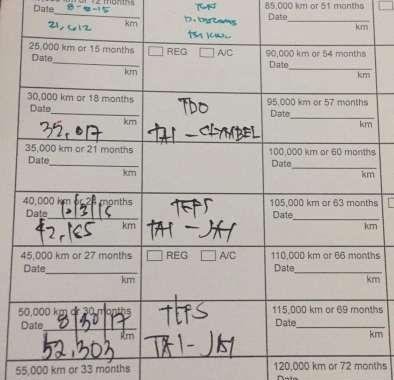 12 months
Date 8-8-15
21,612 km
85,000 km or 51 months
Date
km
25,000 km or 15 months
REG A/C
Date
km
90,000 km or 54 months
Date
km
30,000 km or 18 months
TDO
Date
35,017 km
TAI -
95,000 km or 57 months
Date
km
35,000 km or 21 months
Date
km
100,000 km or 60 months
Date
km
40,000 km or 24 months
TEPS
Date
42,165 km
TAI - JAY
105,000 km or 63 months
Date
km
45,000 km or 27 months
REG A/C
Date
km
110,000 km or 66 months
Date
km
50,000 km or 30 months
TEPS
Date 8/30/17
52,303 km
TAI - JAY
115,000 km or 69 months
Date
km
55,000 km or 33 months
120,000 km or 72 months
Date